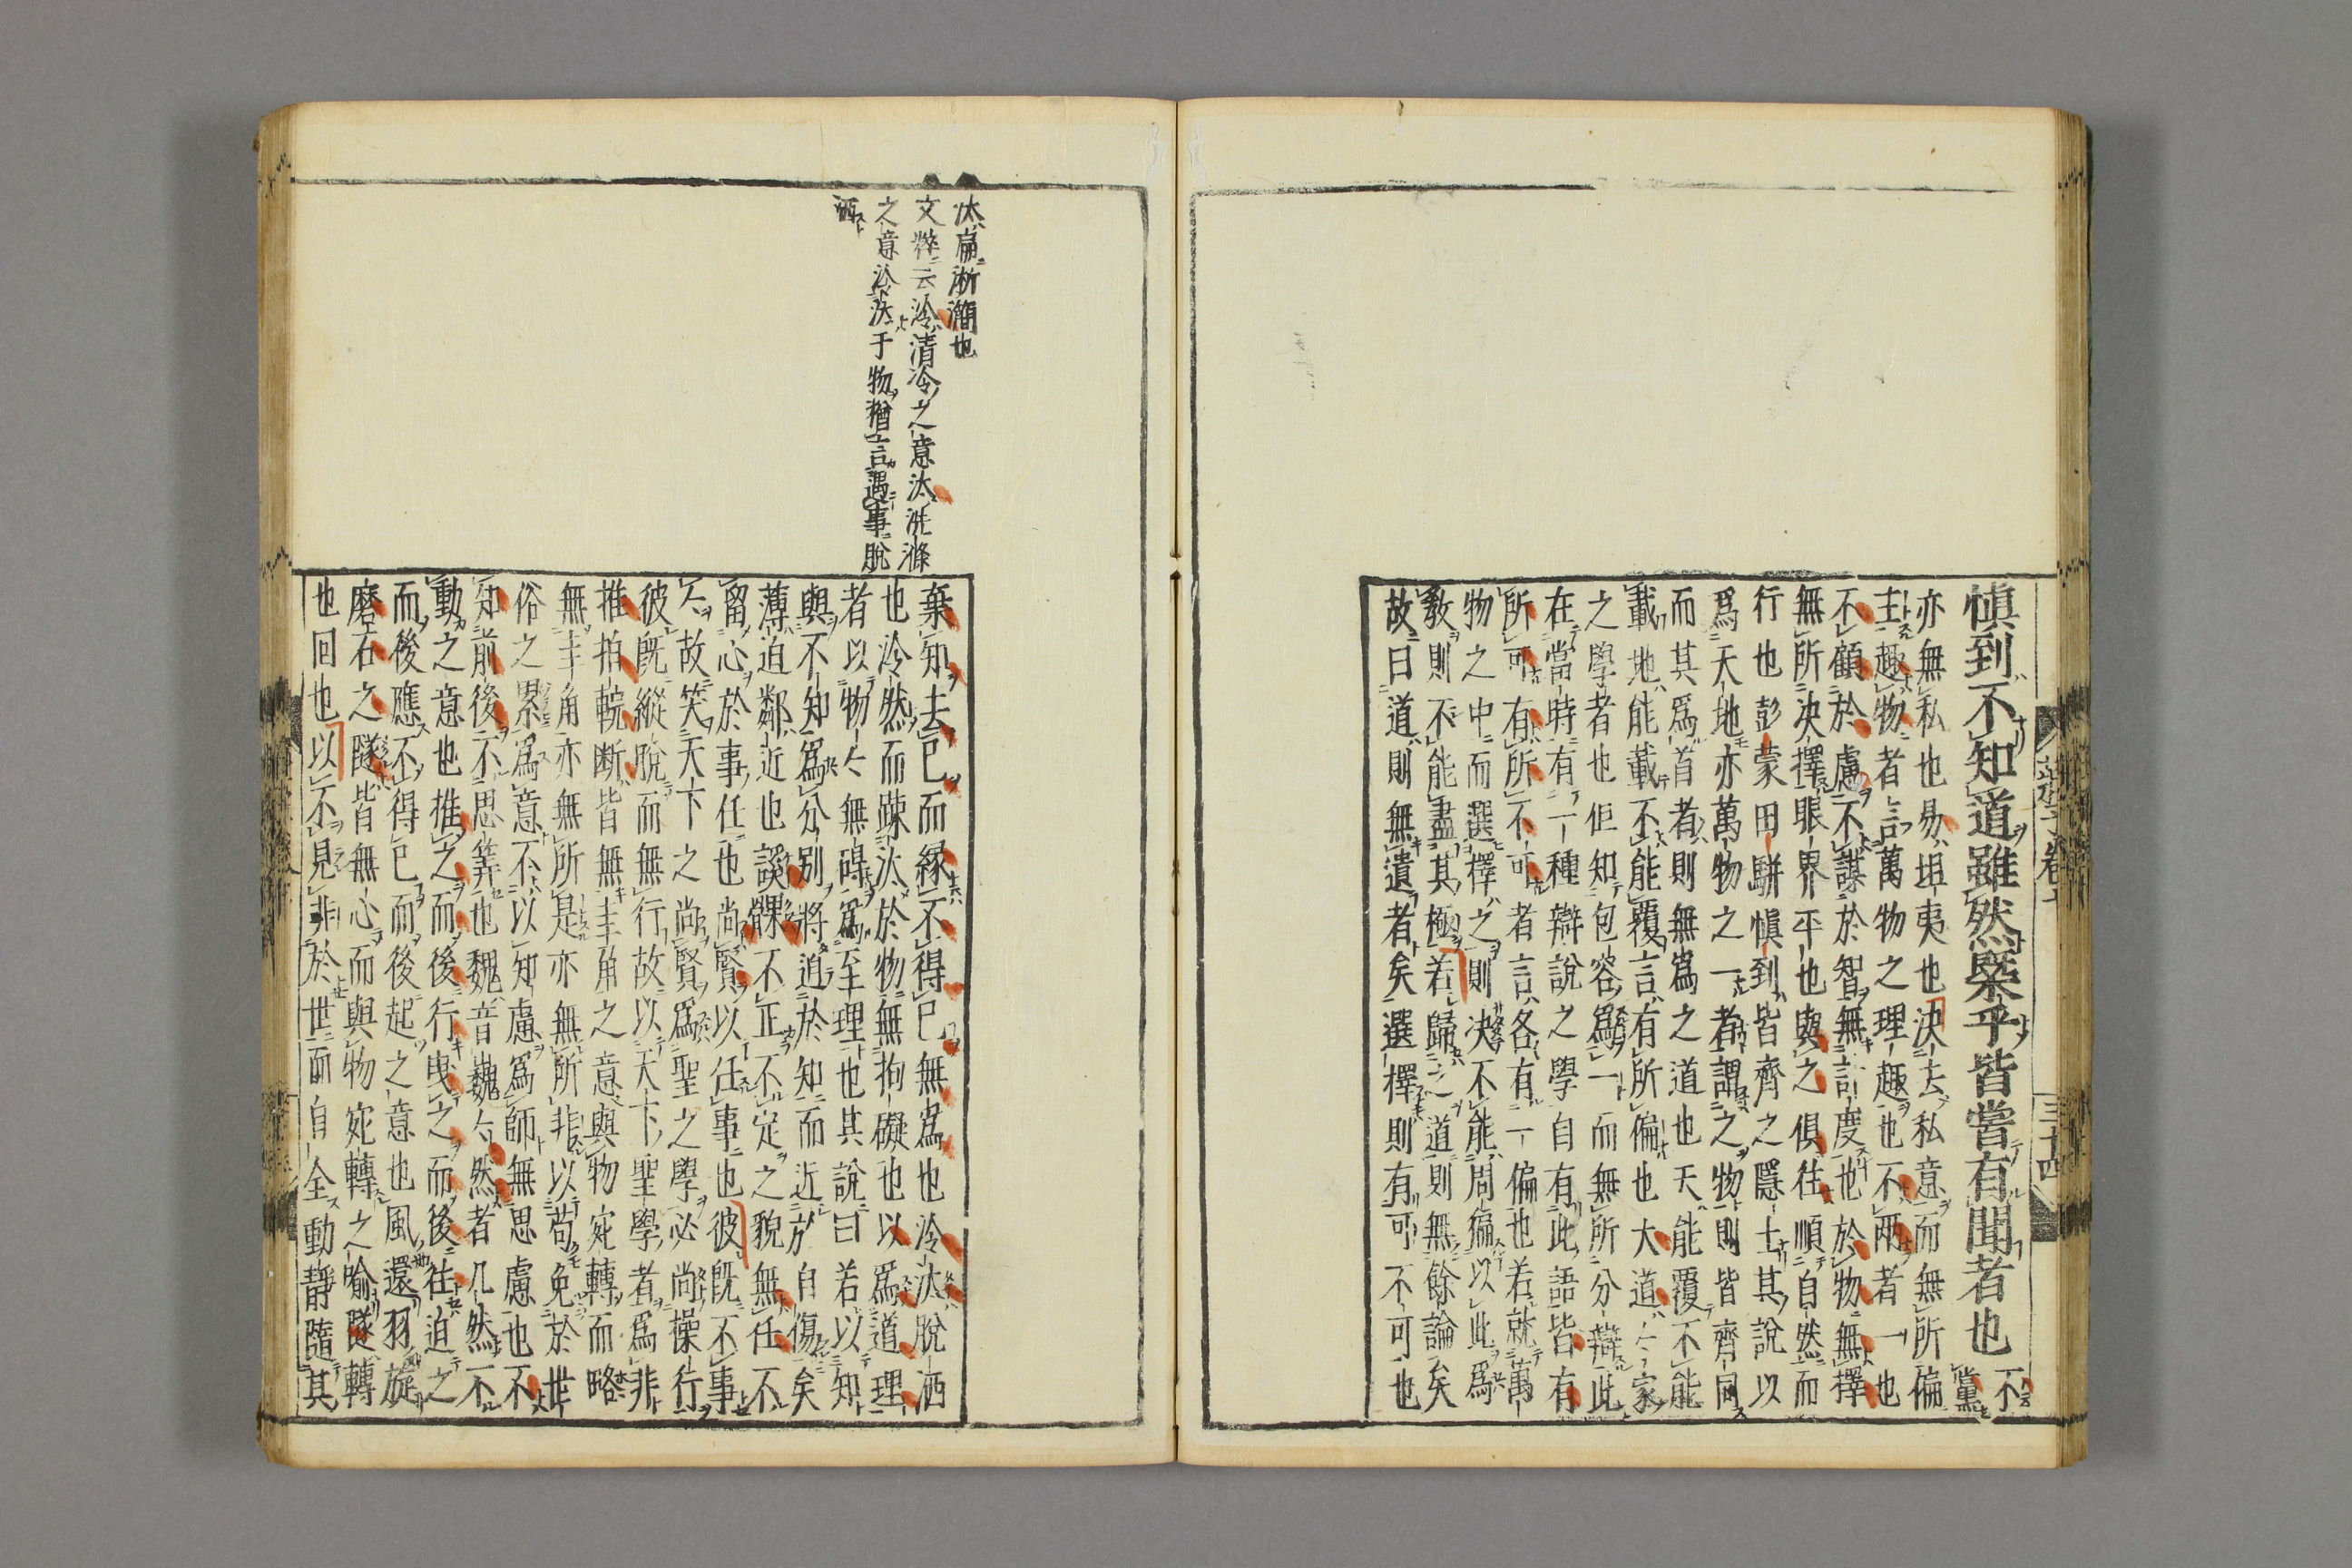 慎到不知道雖然槩乎皆嘗有聞者也不黨
亦無私也易坦夷也決去私意而無所偏
主趣物者言萬物之理趣也不兩者一也
不顧於慮不謀於智無計度也於物無擇
無所决擇眼界平也與之俱往順自然而
行也彭蒙田駢慎到皆齊之隱士其說以
爲天地亦萬物之一者謂之物則皆齊同
而其爲首者則無爲之道也天能覆不能
載地能載不能覆言有所偏也大道一家
之學者也但知包容爲一而無所分辯此
在當時有一種辯說之學自有此語皆有
所可有所不可者言各有一偏也若就萬
物之中而選擇之則决不能周徧以此爲
敎則不能盡其極若歸之道則無餘論矣
故曰道則無遺者矣選擇則有可不可也
莊子卷十
三十四
汰音淅瀰也
文粹云泠清泠之意汰洗滌
之意泠汰于物猶言遇事脫
洒
棄知去已而緣不得已無爲也泠汰脫洒
也泠然而踈汰於物無拘礙也以爲道理
者以物々無碍爲至理也其說曰若以知
與不知爲分別將迫於知而近於自傷矣
薄迫鄰近也謑髁不正不定之貌無任不
留心於事任也尚賢以任事也彼旣不事
々故笑天下之尚賢爲聖之學必尚操行
彼旣縱脫而無行故以天下聖學者爲非
推拍輐断皆無圭角之意與物宛轉而略
無圭角亦無所是亦無所非以苟免於世
俗之累爲意不以知慮爲師無思慮也不
知前後不思筭也魏音巍々然者兀然不
動之意也推之而後行曳之而後往迫之
而後應不得已而後起之意也風還羽旋
磨石之隧皆無心而與物宛轉之喻隧轉
也回也以不見非於世而自全動靜隨其